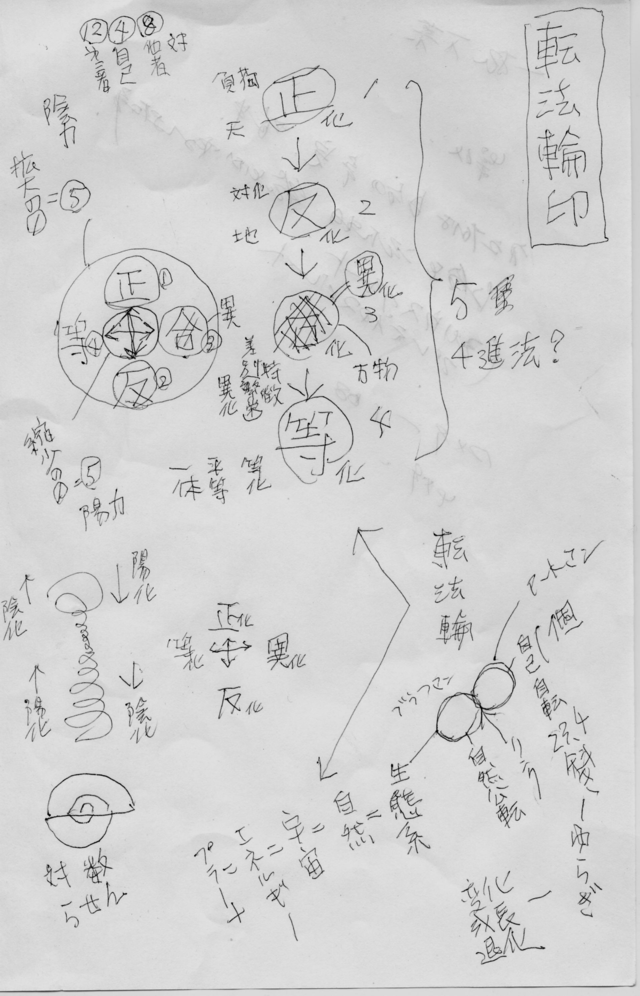 転法輪印
⑫ ④ ⑧ 対
自己
他者
陰力
拡大
=⑤
負荷
天
正化 1
↓
対化
地
反化 2
↓
異化
3
化
万物
差別
特徴
異化
↓
等化 4
一体 平等 等化
5重
4進法?
正①
等④
合③
異
反②
縮少
=⑤
陽力
陰化
陽化
陽化
陰化
正化
等化
異化
反化
対数
らせん
転法輪
アートマン
ブラフマン
自己(個
自転
リタ
自然公転
23.4
ゆらぎ
変化
成長
退化
生態系
=自然
=宇宙
=エネルギー
=プラーナ